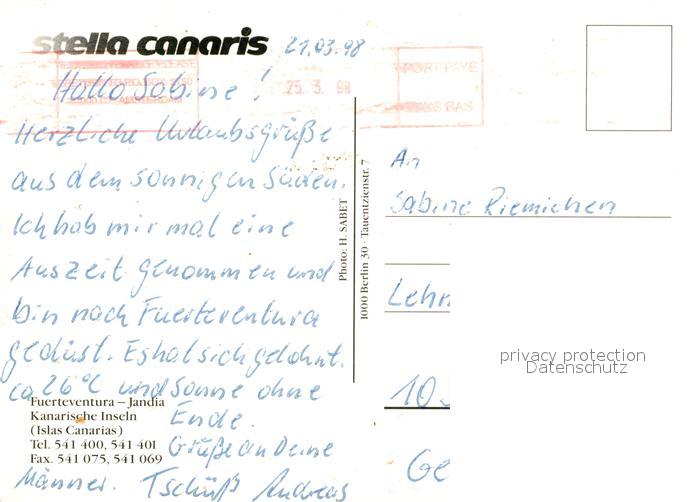 stella canaris 21.03.98
Hallo Sabine!
25. 3. 98
PORT PAYE
PAYS BAS
Herzliche Urlaubsgrüße
aus dem sonnigen Süden.
Ich hab mir mal eine
Auszeit genommen und
bin nach Fuerteventura
gedüst. Es hat sich gelohnt.
ca 26°C und Sonne ohne
Ende.
Grüße an Deine
Männer. Tschüß Andreas
Fuerteventura – Jandia
Kanarische Inseln
(Islas Canarias)
Tel. 541 400, 541 401
Fax. 541 075, 541 069
Photo: H. SABET
1000 Berlin 30 · Tauentzienstr. 7
An
Sabine Riemichen
Lehn
10
Ge
privacy protection
Datenschutz